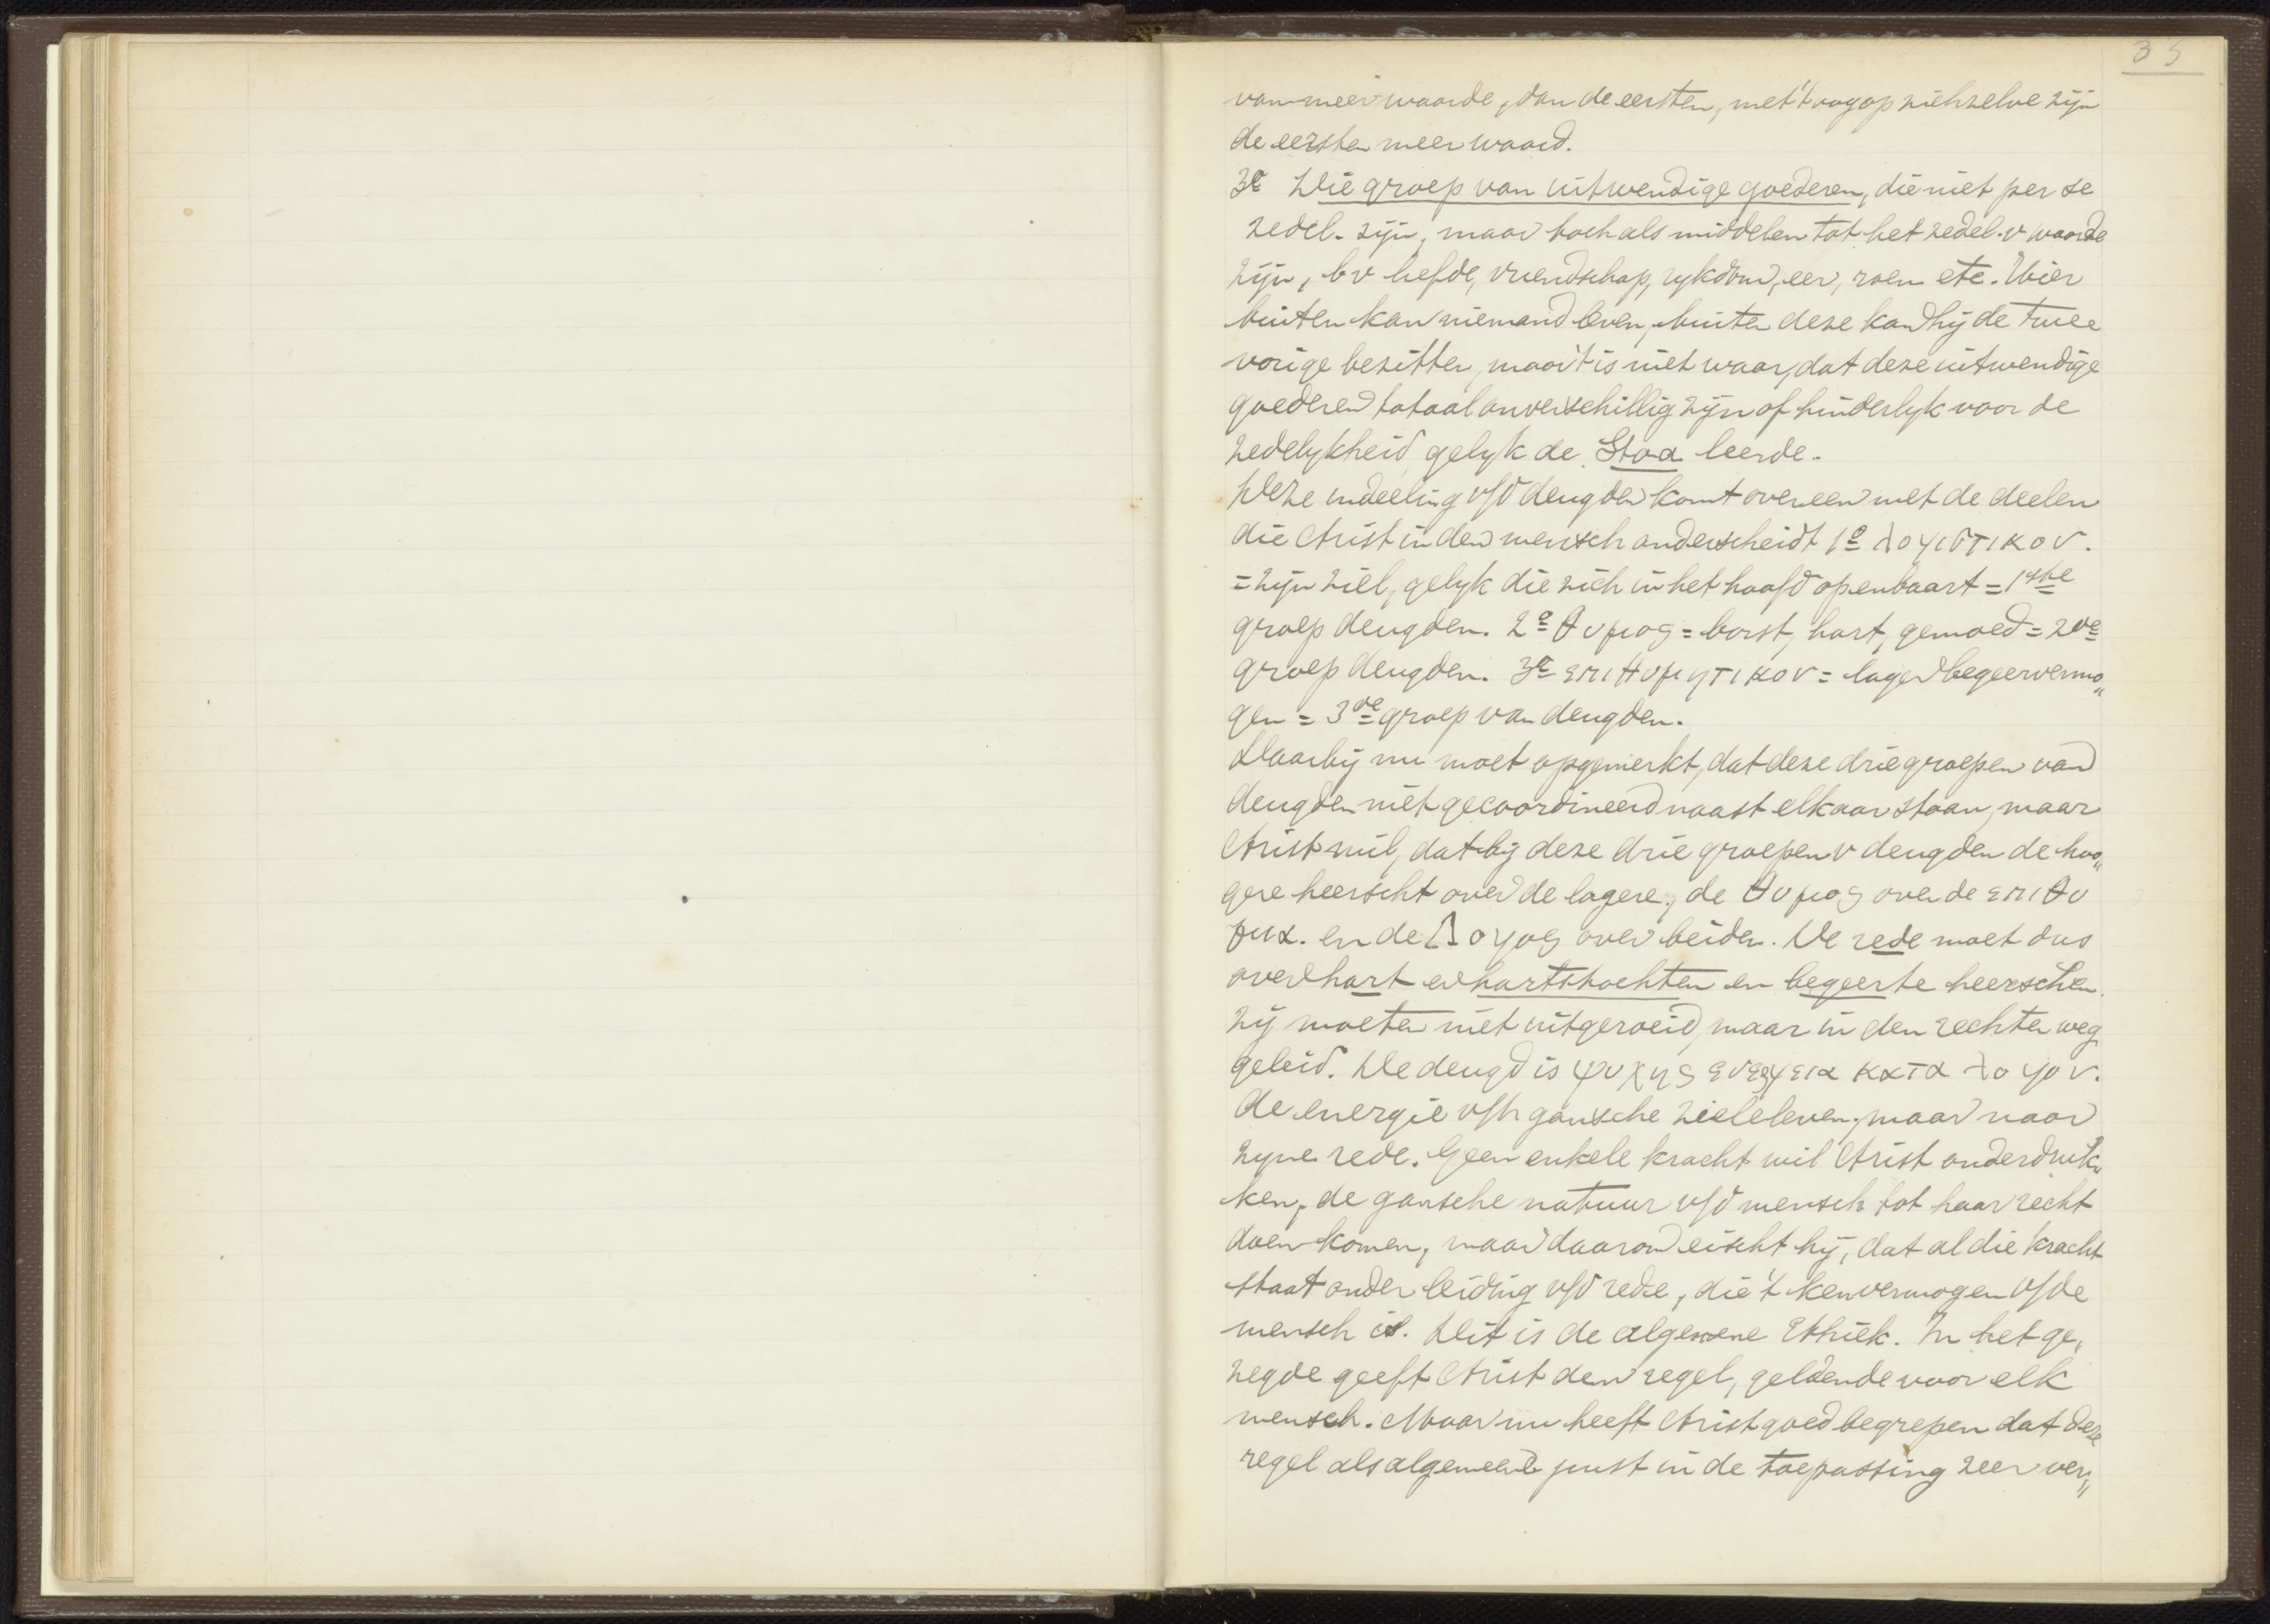 35
van meer waarde, dan de eersten, met 't oog op zichzelve zijn
de eersten meer waard.
3e Die groep van uitwendige goederen, die niet per se
zedel. zijn, maar toch als middelen tot het zedel. v waarde
zijn, bv liefde, vriendschap, rykdom, eer, roem etc. Hier
buiten kan niemand leven, buiten deze kan hij de twee
vorige bezitten, maar 't is niet waar, dat deze uitwendige
goederen totaal onverschillig zijn of hinderlyk voor de
zedelykheid gelyk de Stoa leerde.
Deze indeeling v/d deugden komt overeen met de deelen
die Arist in den mensch onderscheidt 1e λογιστικον.
= zijn ziel, gelyk die zich in het hoofd openbaart = 1ste
groep deugden. 2e θυμος = borst, hart, gemoed = 2de
groep deugden. 3e επιθυμητικον = lager begeervermo„
gen = 3de groep van deugden.
Daarbij nu moet opgemerkt, dat deze drie groepen van
deugden niet gecoordineerd naast elkaar staan, maar
Arist wil, dat bij deze drie groepen v deugden de hoo„
gere heerscht over de lagere, de θυμος over de επιθυ
μια. en de Λογος over beiden. De rede moet dus
over hart en hartstochten en begeerte heerschen.
Zij moeten niet uitgeroeid, maar in den rechten weg
geleid. De deugd is ψυχης ενεργεια κατα λογον.
de energie v/h gansche zieleleven, maar naar
zyne rede. Geen enkele kracht wil Arist onderdruk„
ken, de gansche natuur v/d mensch tot haar recht
doen komen, maar daarom eischt hij, dat al die kracht
staat onder leiding v/d rede, die 't kenvermogen v/de
mensch is. Dit is de algemene Ethiek. In het ge„
zegde geeft Arist den regel, geldende voor elk
mensch. Maar nu heeft Arist goed begrepen dat deze
regel als algemeene juist in de toepassing zeer ver„